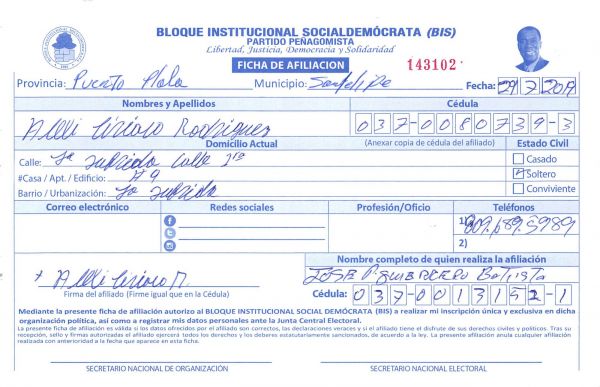 BLOQUE INSTITUCIONAL SOCIALDEMÓCRATA (BIS)
PARTIDO PEÑAGOMISTA
Libertad, Justicia, Democracia y Solidaridad
FICHA DE AFILIACION 143102
Provincia: Puerto Plata Municipio: San Felipe Fecha: 29 7 2019
Nombres y Apellidos Cédula
Ciriaco Rodriguez 037-0080739-3
Domicilio Actual (Anexar copia de cédula del afiliado) Estado Civil
Calle: la subida calle Casado
#Casa / Apt. / Edificio: #9 Soltero
Barrio / Urbanización: la subida Conviviente
Correo electrónico Redes sociales Profesión/Oficio Teléfonos
1) 809.689.5989
2)
Nombre completo de quien realiza la afiliación
Ciriaco R. JOSE Batista
Firma del afiliado (Firme igual que en la Cédula) Cédula: 037-0013152-1
Mediante la presente ficha de afiliación autorizo al BLOQUE INSTITUCIONAL SOCIAL DEMÓCRATA (BIS) a realizar mi inscripción única y exclusiva en dicha
organización política, así como a registrar mis datos personales ante la Junta Central Electoral.
La presente ficha de afiliación es válida si los datos ofrecidos por el afiliado son correctos, las declaraciones veraces y si el afiliado tiene el disfrute de sus derechos civiles y políticos. Tras su
recepción, sello y firmas autorizadas el afiliado ejercerá todos los derechos y los deberes estatutariamente sancionados, de acuerdo a la ley. La presente afiliación anula cualquier afiliación
realizada con anterioridad a la fecha que aparece en esta ficha.
SECRETARIO NACIONAL DE ORGANIZACIÓN SECRETARIO NACIONAL ELECTORAL